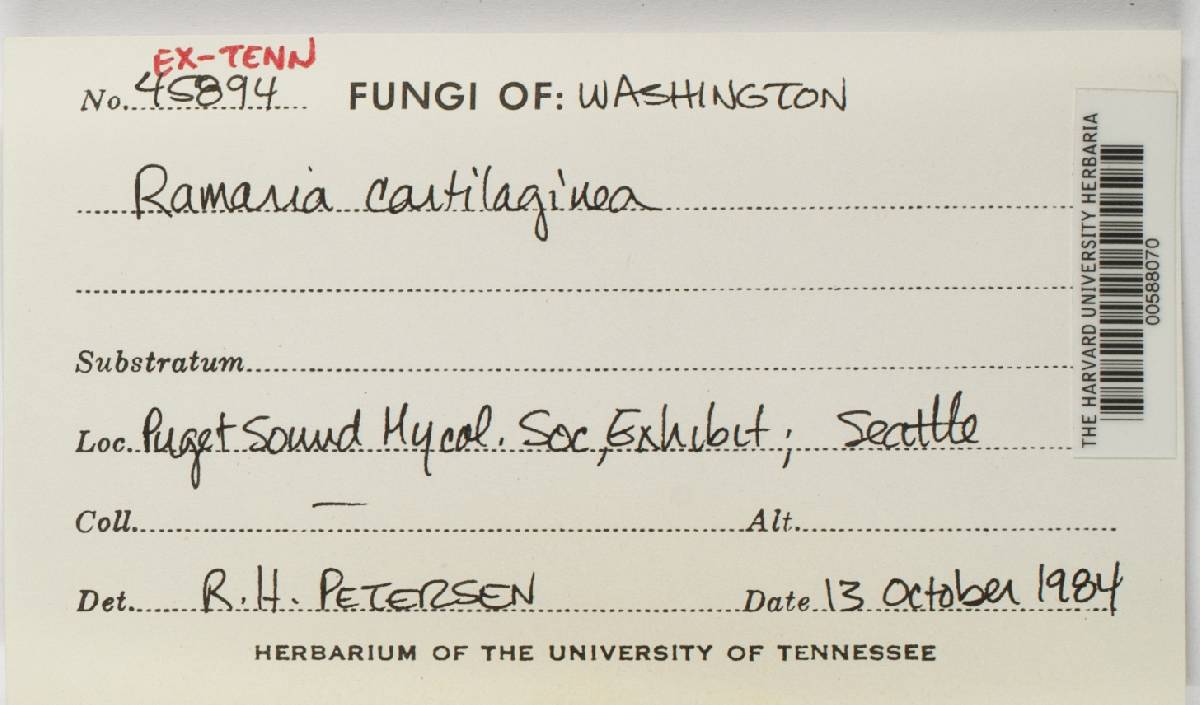 EX-TENN
No. 45894 FUNGI OF: WASHINGTON
Ramaria cartilaginea
Substratum
Loc. Puget Sound Mycol. Soc, Exhibit; Seattle
Coll. — Alt.
Det. R.H. PETERSEN Date 13 October 1984
HERBARIUM OF THE UNIVERSITY OF TENNESSEE
THE HARVARD UNIVERSITY HERBARIA
00588070